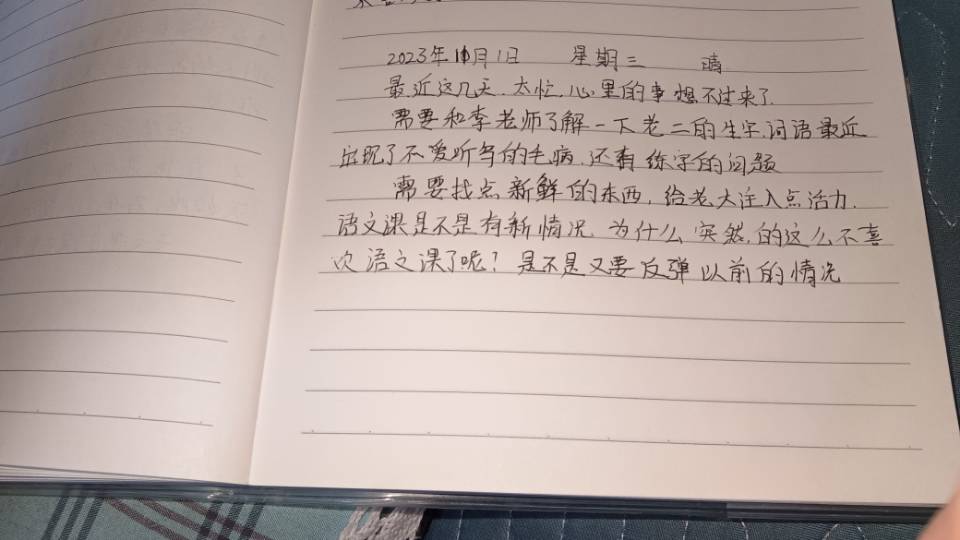 2023年11月1日 星期三 晴
最近这几天太忙.心里的事想不过来了.
需要和李老师了解一下老二的生字词语最近
出现了不爱听写的毛病.还有练字的问题
需要找点新鲜的东西,给老大注入点活力.
语文课是不是有新情况 为什么突然的这么不喜
欢语文课了呢?是不是又要反弹以前的情况